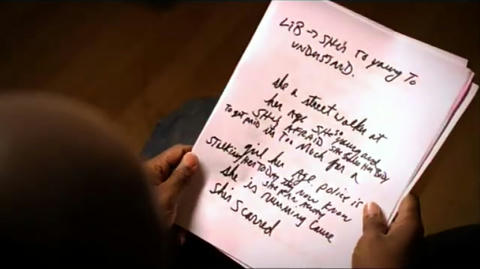 LIB → SHE's To young To
UNDERSTAND.
she a street walker at
her age SHE's young and
SHE's AFRAID She sales Her Body
To get PAID it's Too Much For a
girl her Age police is
STALKING HER TO Day they now know
SHE RAN AWAY
she is running Cause
She Scarred